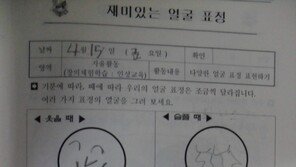 재미있는 얼굴 표정
날짜 4월 15일 ( 요일) 확인
영역 자율활동 (창의체험학습 : 인성교육) 활동내용 다양한 얼굴 표정 표현하기
기분에 따라, 때에 따라 우리의 얼굴 표정은 조금씩 달라집니다.
여러 가지 표정의 얼굴을 그려 보세요.
◀ 웃을 때 ◀ 슬플 때